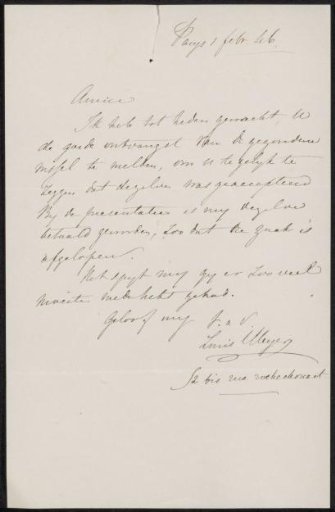 Parys 1 febr 46
Amice
Ik heb tot heden gewacht, U
de goede ontvangst van de gezondene
wissel te melden, om u te gelyk te
zeggen dat dezelve was geaccepteerd
By de presentatie is my dezelve
betaald geworden, zoo dat de zaak is
afgelopen.
Het spyt my gy er zoo veel
moeite mede hebt gehad.
Geloof my t. a v.
Louis Meyer
52 bis rue rochechouart